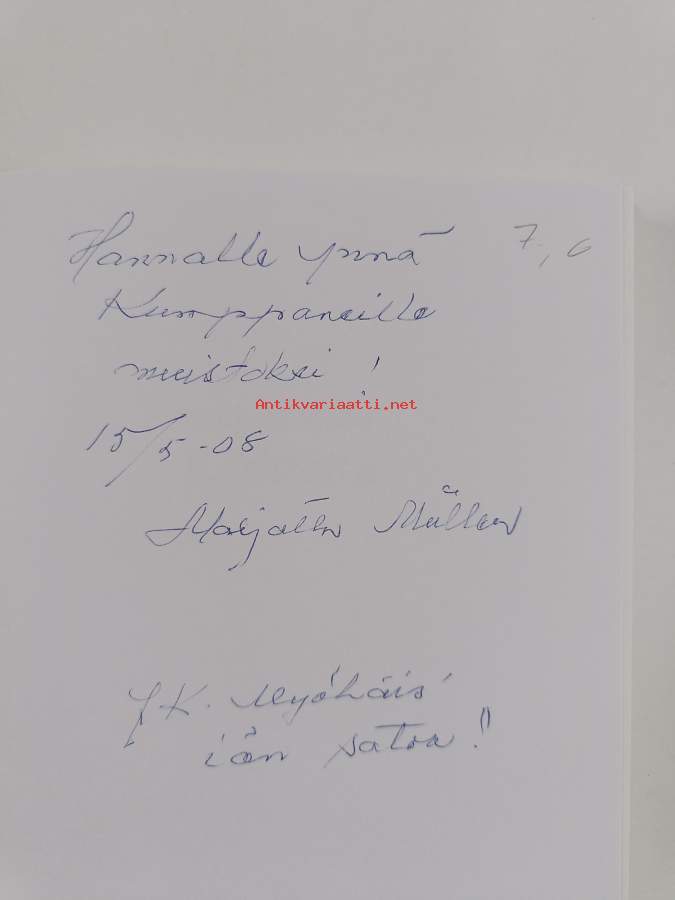 Hannalle ynnä 7,6
Kumppaneille
muistoksi!
Antikvariaatti.net
15/5-08
Marjatta Müller
J.K. Myöhäis
iän satoa!!